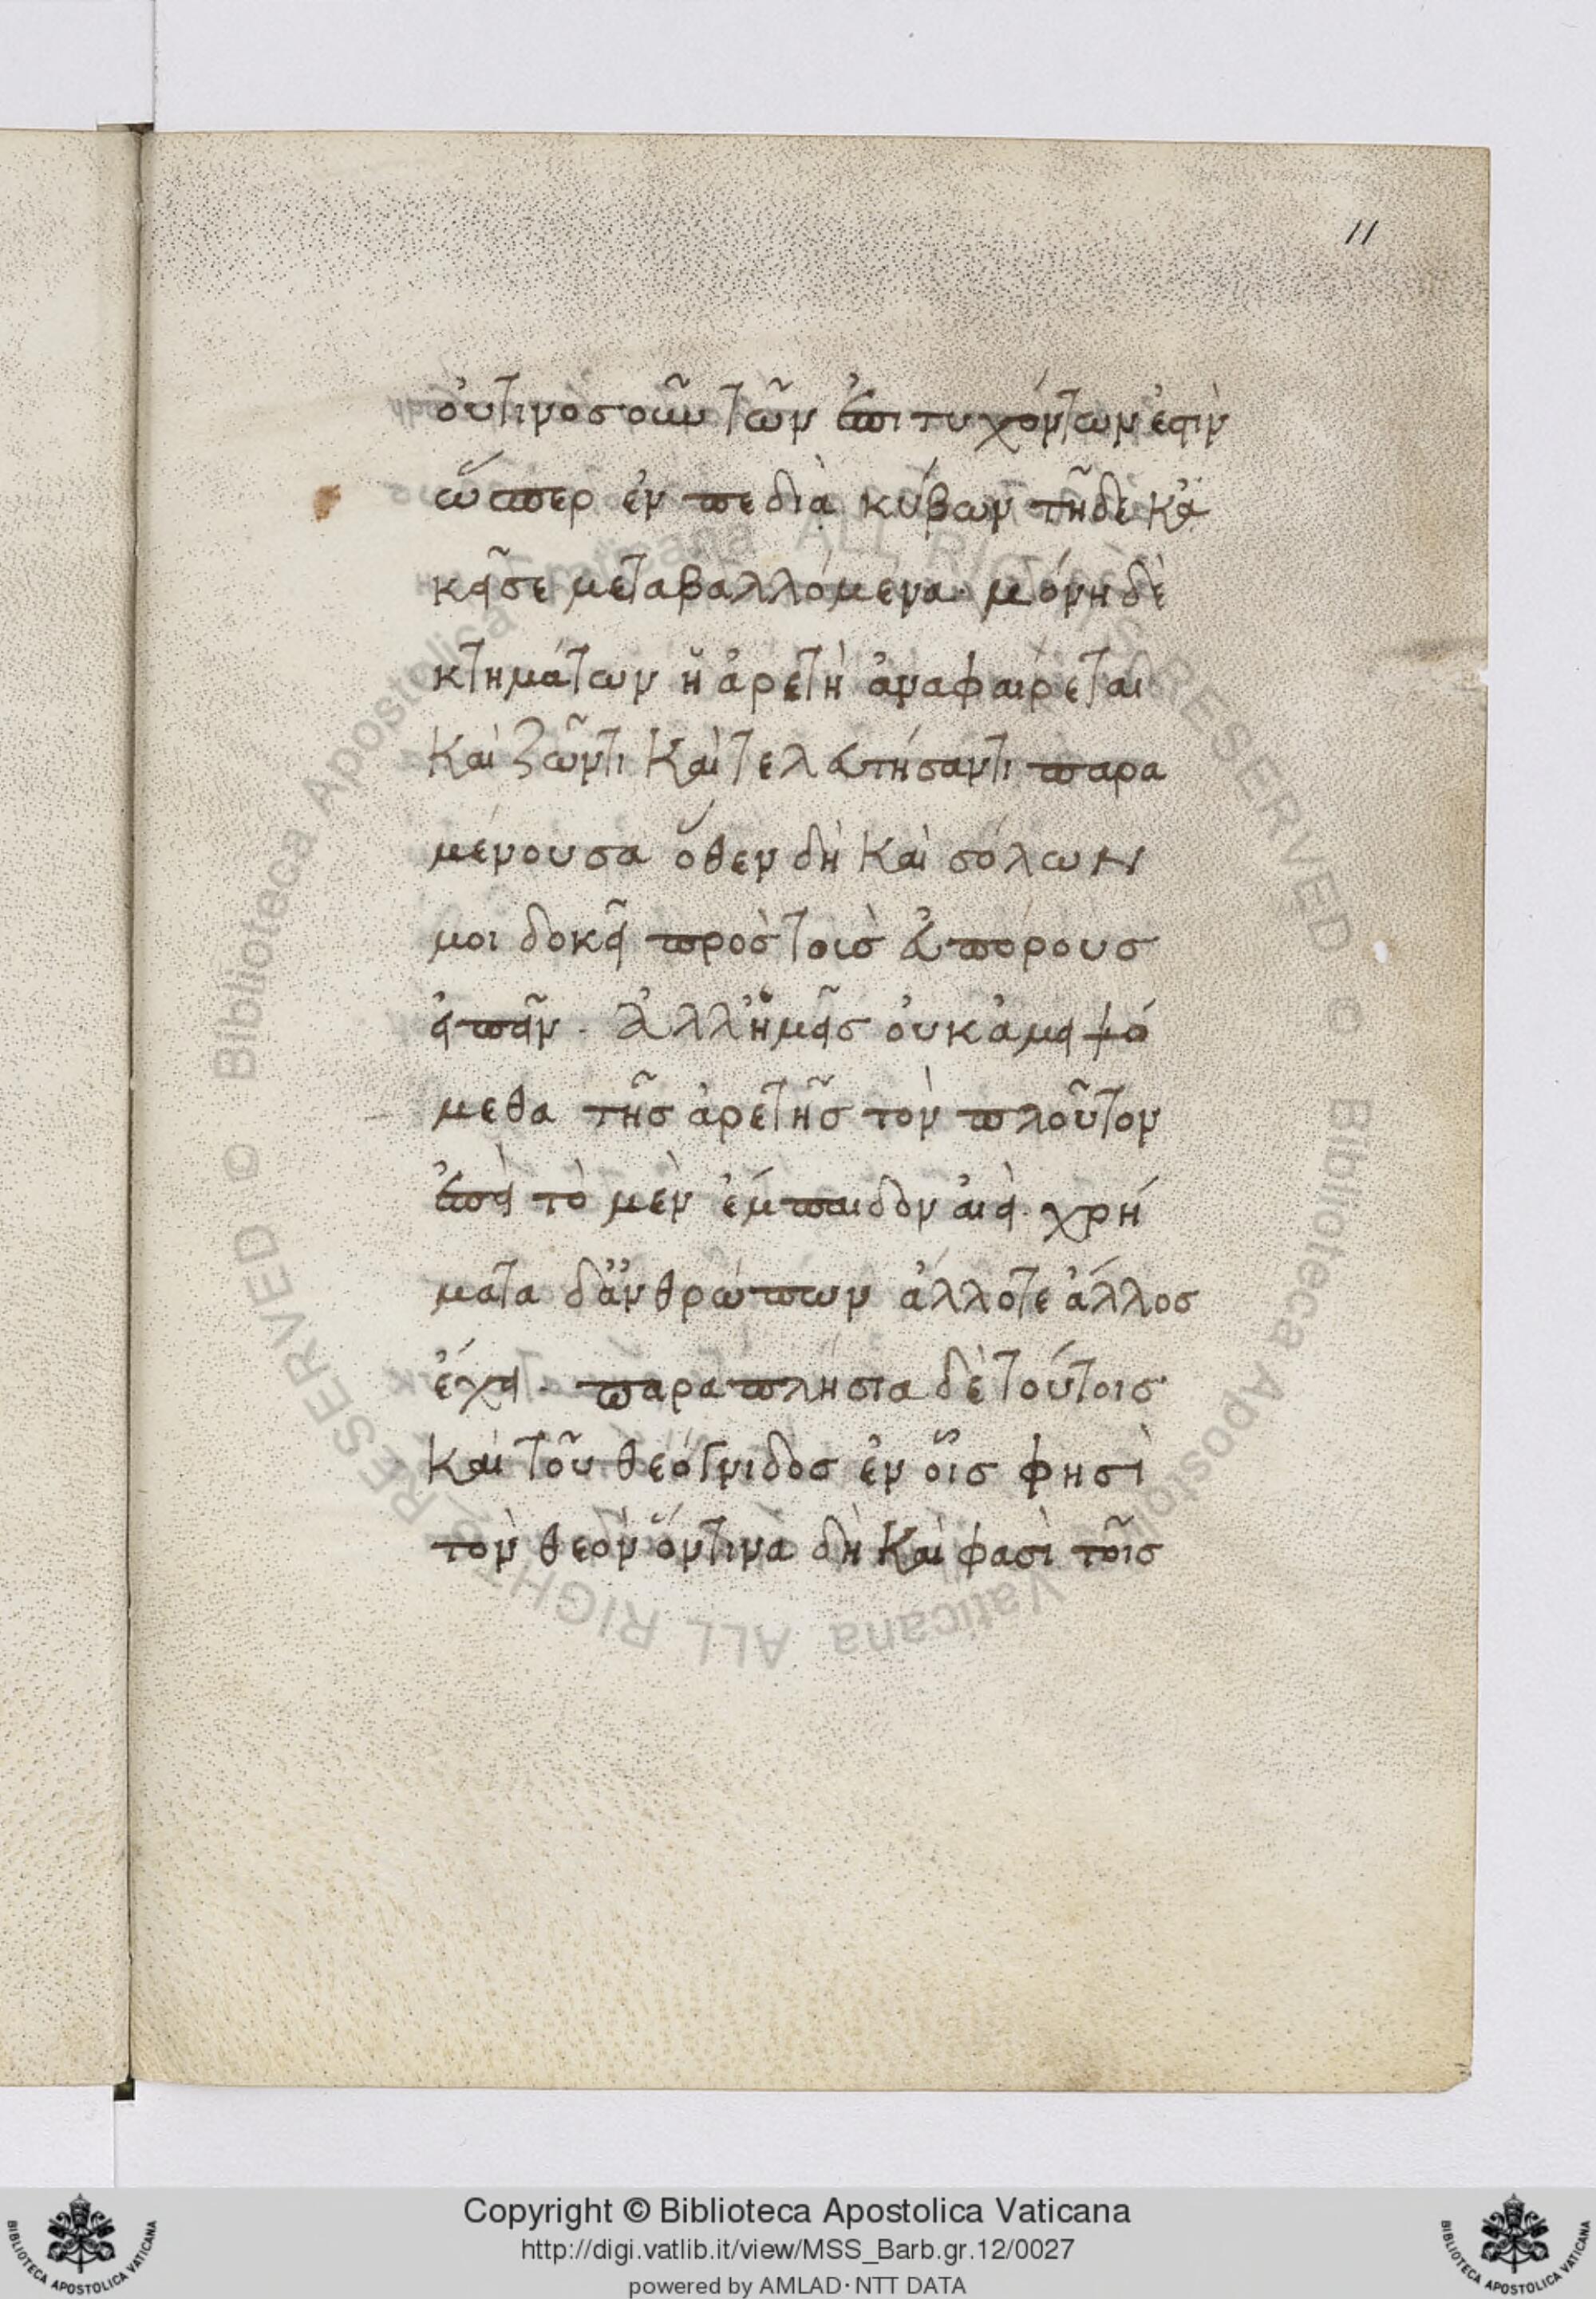 11
οὐτινοσοῦν τῶν ἐπιτυχόντων ἐστὶν
ὥσπερ ἐν πεδιὰ κύβων τῆδε κἀ
κεῖσε μεταβαλλόμενα· μόνη δὲ
κτημάτων ἡ ἀρετὴ ἀναφαίρεται
Καὶ ζῶντι Καὶ τελευτήσαντι παρα
μένουσα ὅθεν δὴ Καὶ σόλων
μοι δοκεῖ πρὸς τοὶς εὐπόρους
εἰπεῖν· ἀλλ' ἡμεῖς οὐκ ἀμειψό
μεθα τῆς ἀρετῆς τὸν πλοῦτον
ἐπεὶ τὸ μὲν ἔμπαιδον αἰεὶ· χρή
ματα δ' ἀνθρώπων ἄλλοτε ἄλλος
ἔχει· παραπλήσια δὲ τούτοις
Καὶ τοῦ θεόγνιδος ἐν οἷς φησὶ
τὸν θεὸν ὅντινα δὴ Καὶ φασὶ τοῖς
Copyright © Biblioteca Apostolica Vaticana
http://digi.vatlib.it/view/MSS_Barb.gr.12/0027
powered by AMLAD·NTT DATA
BIBLIOTECA APOSTOLICA VATICANA
BIBLIOTECA APOSTOLICA VATICANA
Biblioteca Apostolica Vaticana ALL RIGHTS RESERVED © Biblioteca Apostolica Vaticana ALL RIGHTS RESERVED ©